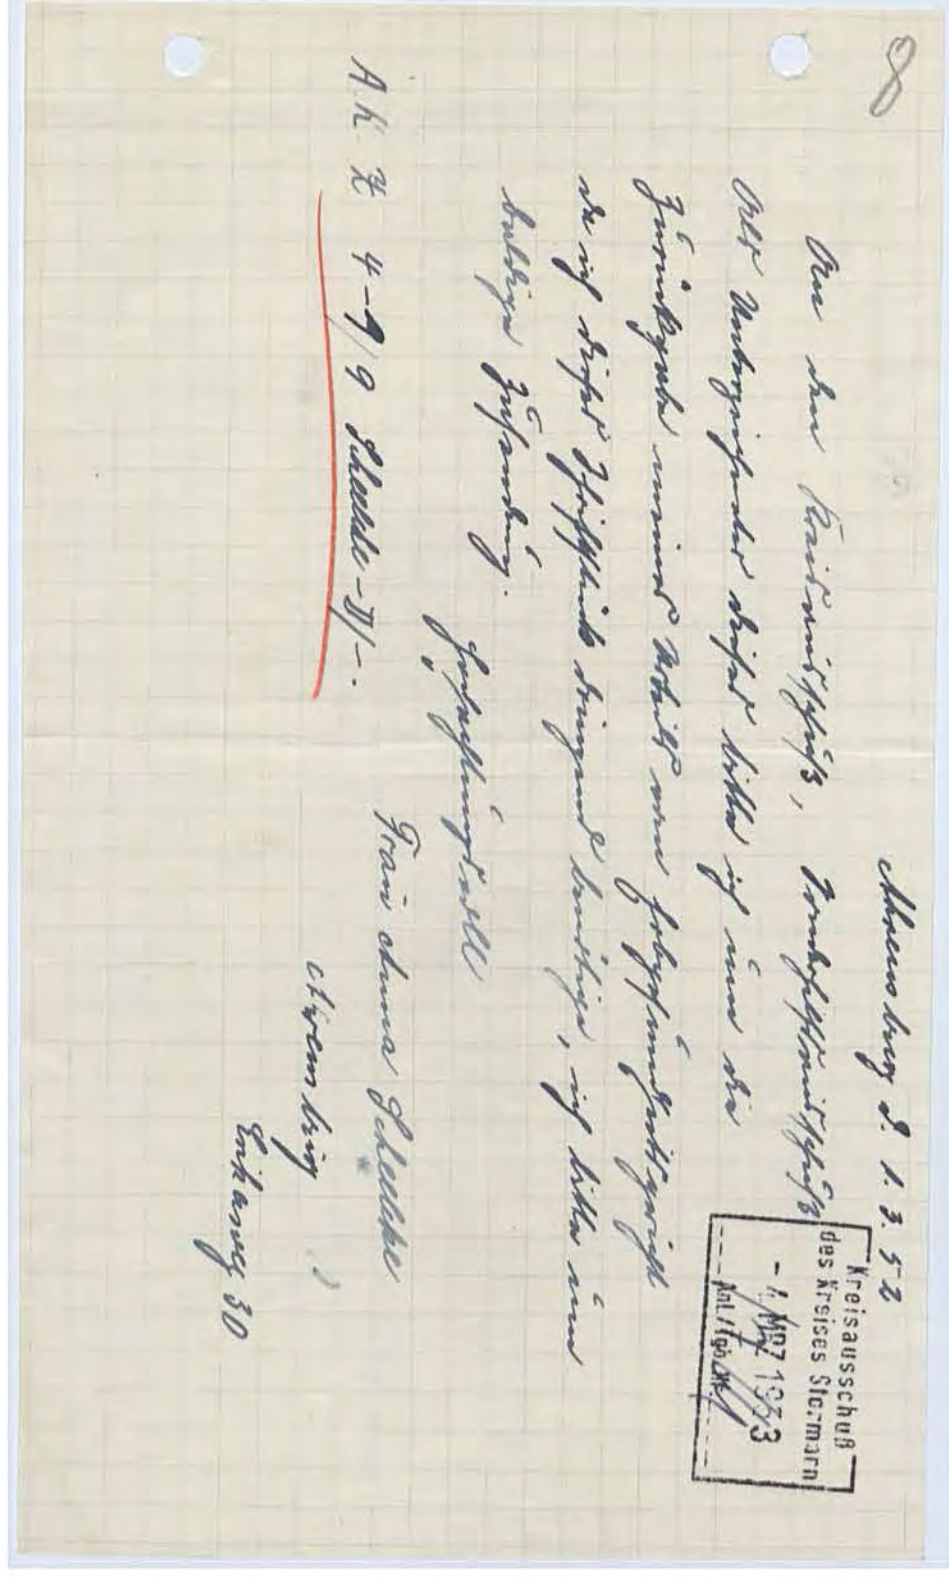 8
Ahrensburg d. 1.3.52
Kreisausschuß
des Kreises Stormarn
- 4. MRZ 1953
An den Kreisausschuß, Sonderhilfsausschuß
Als Unterzeichner dieses bitte ich um die
Zurückgabe meines Urteils vom Erbgesundheitsgericht
da ich dieses Schriftstück dringend benötige, ich bitte um
baldige Zusendung.
Hochachtungsvoll
Frau Anna Scheelke
Ahrensburg
30
4-9/9 Scheelke